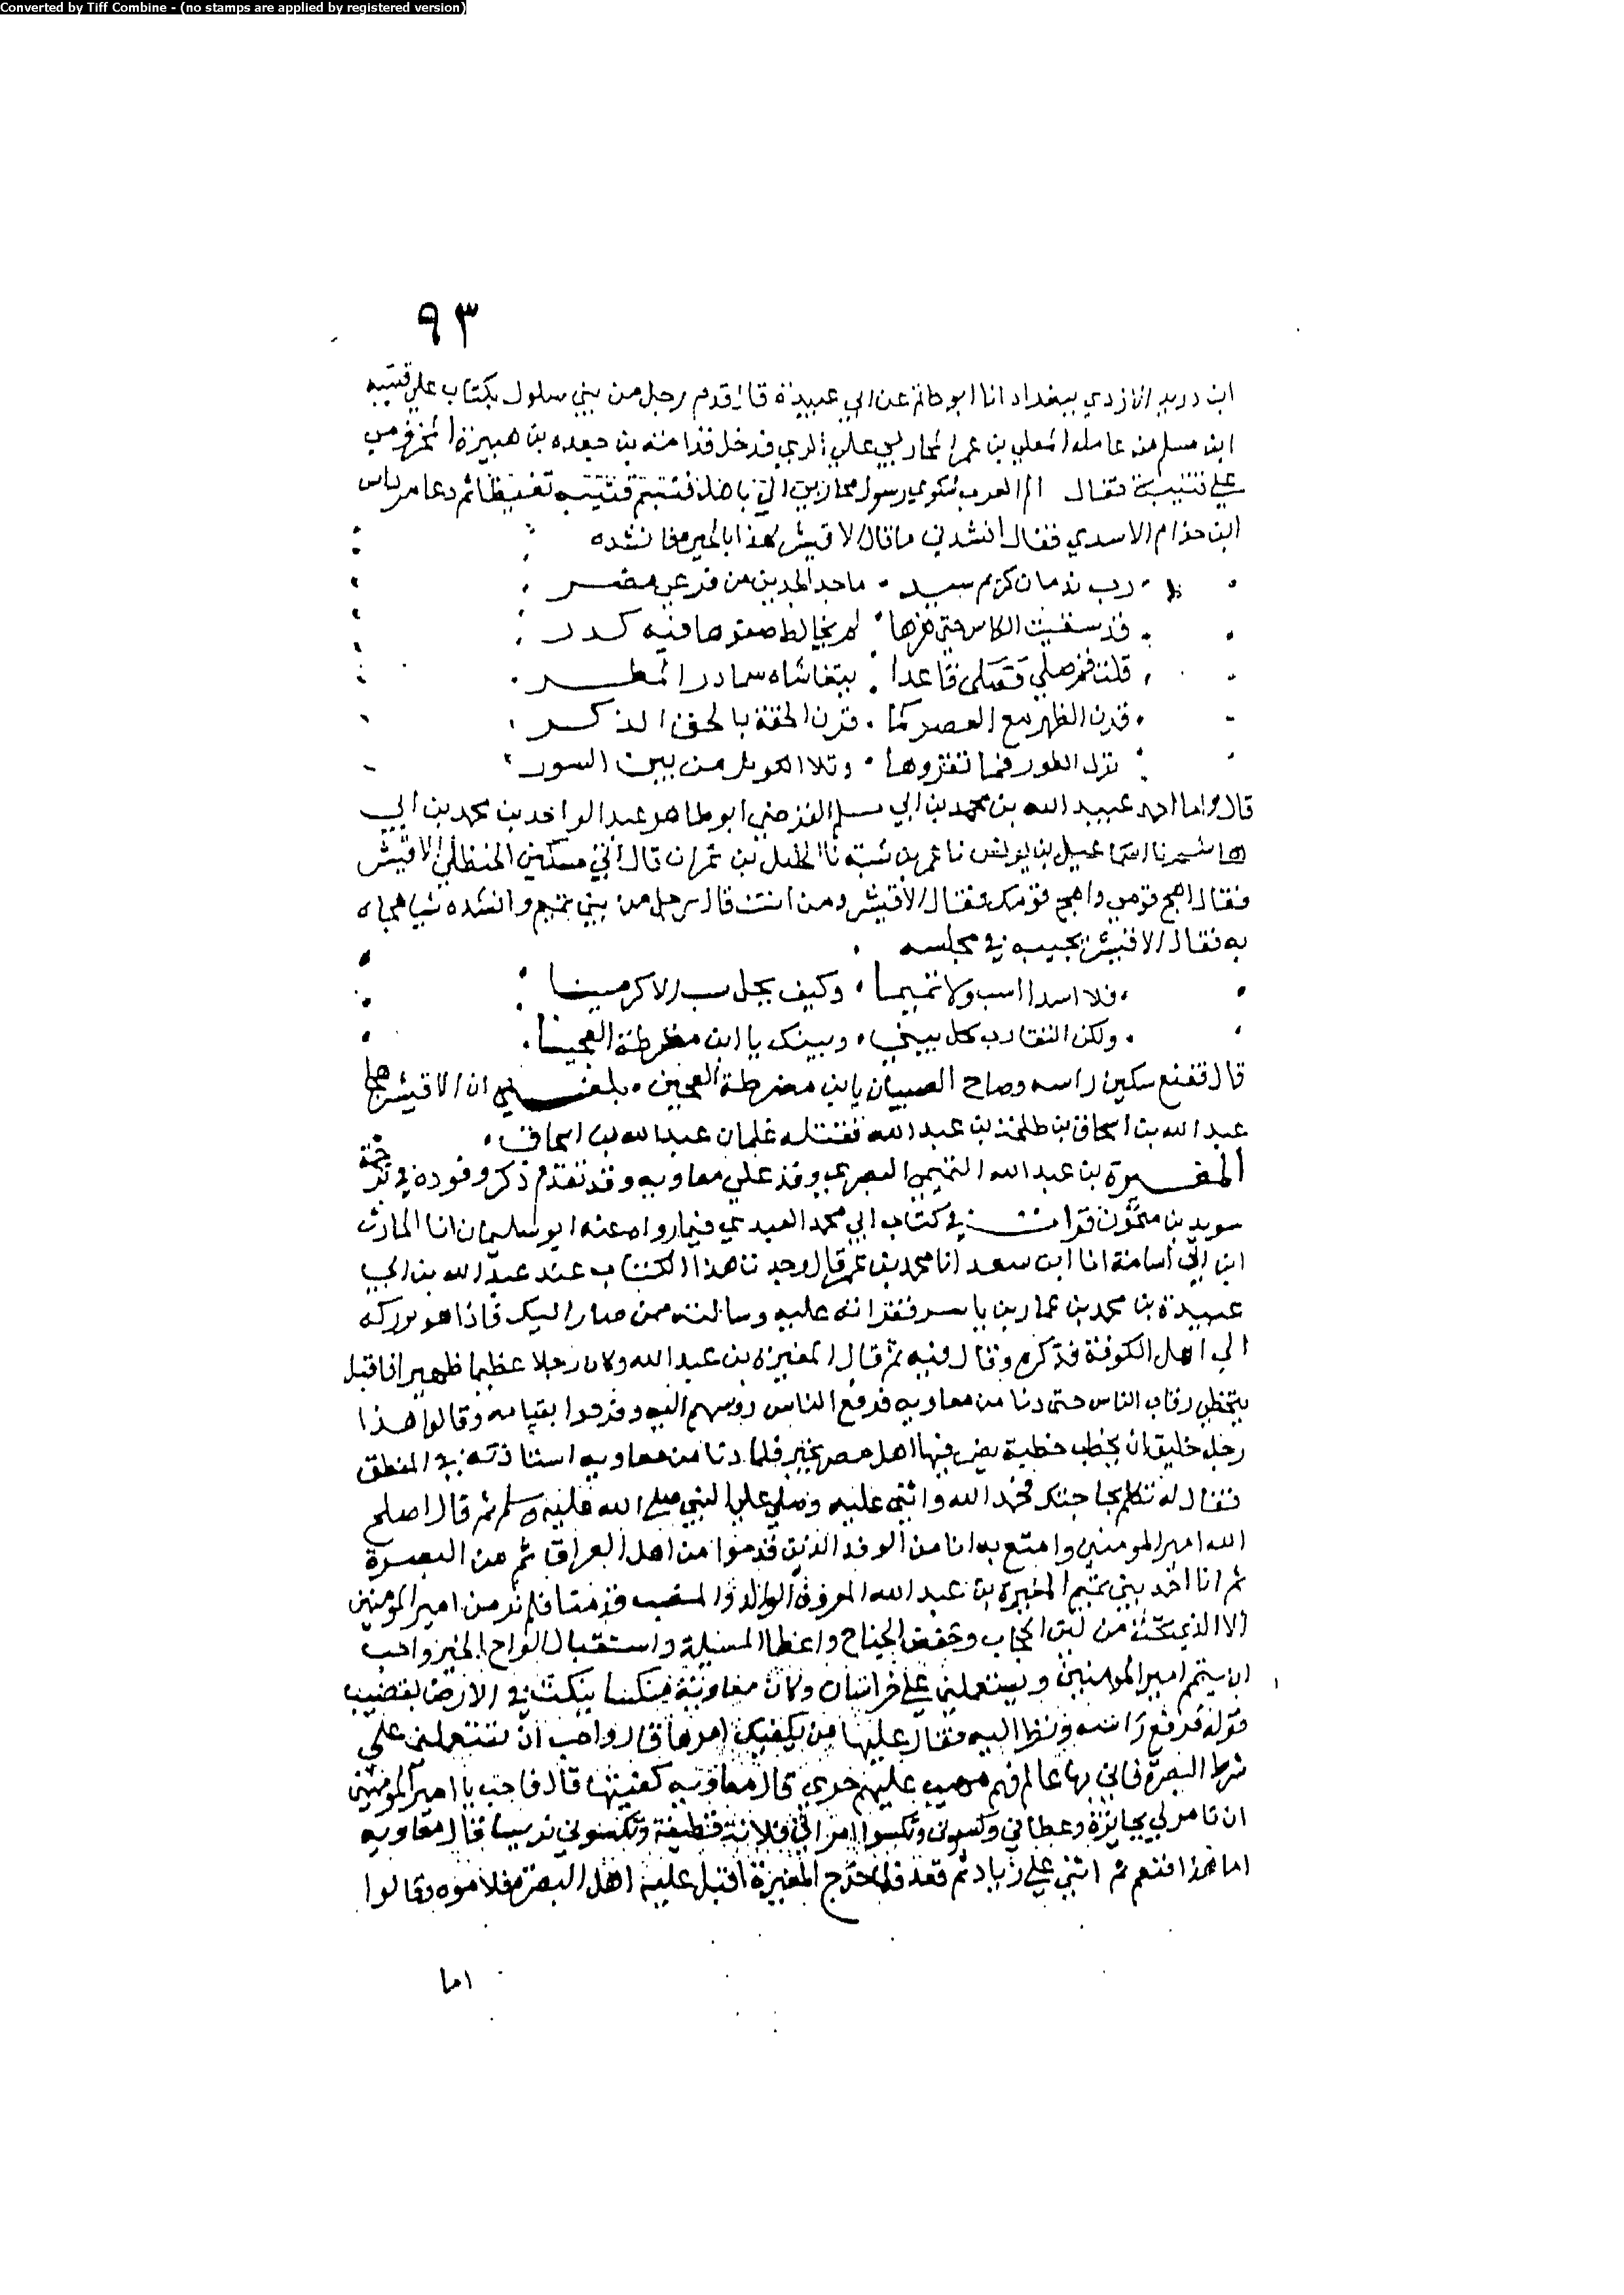 Converted by Tiff Combine - (no stamps are applied by registered version)
٩٣
ابن دريد الازدي ببغداد انا ابو حاتم عن ابي عبيدة قال قدم رجل من بني سلول بكتاب علي قتيبه
ابن مسلم من عامله المعلي بن عمر المحاربي علي الري فدخل قدامه بن جعده بن هبيرة المخزومي
علي قتيبة فقال العرب سكوي رسول محاربي الي باهلة فتبسم قتيبه تغيظا ثم دعا مرداس
ابن حذام الاسدي فقال انشدني ما قال الاقيشر لهذا بالحيرة فانشده
رب ندمان كريم سيد ماجد الجدين من فرعي مضر
قد سقيت الكاس حتي هزها لم يخالط صفوها فيه كدر
قلت قم صلي فصلى قاعدا يتغاشاه سمادر السكر
قرن الظهر مع العصر كما قرن الحقة بالحق الذكر
ترك الطور فما تقروها وتلا الكوثر من بين السور
قال وانا احمد عبيد الله بن محمد بن ابي مسلم الفرضي ابو طاهر عبد الواحد بن محمد بن ابي
هاشم نا اسماعيل بن يونس نا عمر بن شبة نا الخليل بن عمران قال اتي مسكين الحنظلي الاقيشر
فقال اهج قومي واهج قومك فقال الاقيشر ومن انت قال رجل من بني تميم وانشده شيا هجاه
به فقال الاقيشر يجيبه في مجلسه
فلا اسدا اسب ولا تميما وكيف يحل سب الاكرمينا
ولكن التقارب حل بيني وبينك يا ابن مضرطة العجينا
قال فقنع مسكين راسه وصاح الصبيان يابن مضرطة العجين بلغني ان الاقيشر هجا
عبد الله بن اسحاق بن طلحة بن عبد الله فقتله غلمان عبد الله بن اسحاق
المغيرة بن عبد الله التميمي البصري وفد علي معاويه وقد تقدم ذكر وفوده في ترجمة
سويد بن منجوف قرات في كتاب ابي محمد العبدي فيما رواه عنه ابو سليمان انا الحارث
ابن ابي اسامة انا ابن سعد انا محمد بن عمر قال وجدنا هذا الكتاب عند عبد الله بن ابي
عبيدة بن محمد بن عمار بن ياسر فقراته عليه وسالته ممن صار اليك فاذا هو
الي اهل الكوفة فذكره وقال فيه ثم قال المغيرة بن عبد الله وكان رجلا عظيما ظهيرا فاقبل
يتخطي رقاب الناس حتى دنا من معاويه فرفع الناس روسهم اليه وفرحوا بقيامه وقالوا هذا
رجل خليق ان يخطب خطبة يعرف فيها اهل مصر بخير فلما دنا من معاويه استاذنه في المنطق
فقال له تكلم بحاجتك فحمد الله واثني عليه وصلي علي النبي صلى الله عليه وسلم ثم قال اصلح
الله امير المومنين وامتع به انا من الوفد الذين قدموا من اهل العراق ثم من البصرة
ثم انا احد بني تميم المغيرة بن عبد الله المعروف الوالد والمنصب قدمنا فلم نر من امير المومنين
الا الذي نحبه من لين الحجاب وخفض الجناح واعطا المسيلة واستقبال الواح الخير واحب
ان يتمم امير المومنين ويستعملني علي خراسان وكان معاوية منكسا ينكت في الارض بقضيب
قوله فرفع راسه ونظر اليه فقال عليها من يكفيك امرها قال واحب ان تستعملني علي
شرط البصرة فاني بها عالم فهم مهيب عليهم جري قال معاويه كفيتها قال فاحب يا امير المومنين
ان تامر لي بجايزة وعطاني وكسوني وتكسوا امراتي فلانة قطيفة وتكسوني قال معاويه
اما هذا فنعم ثم اثني علي زياد ثم قعد فلما خرج المغيرة اقبل عليه اهل البصرة فلاموه وقالوا
اما